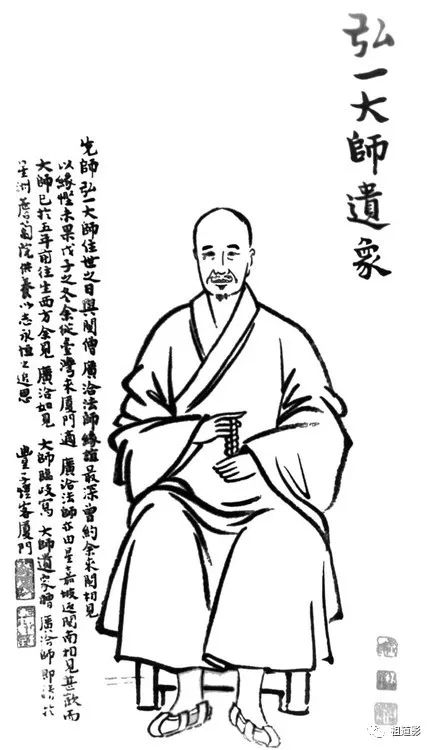 弘一大師遺象
先師弘一大師住世之日與閩僧廣洽法師緣誼最深曾約余來閩相見
以緣慳未果戊子之冬余從臺灣來厦門適廣洽法師亦由星嘉坡返閩南相見甚歡而
大師已於五年前往生西方余見廣洽如見大師臨歧寫大師遺象贈廣洽師即請於
星洲薝蔔院供養以志永恒之追思
豐子愷客厦門
祖道影